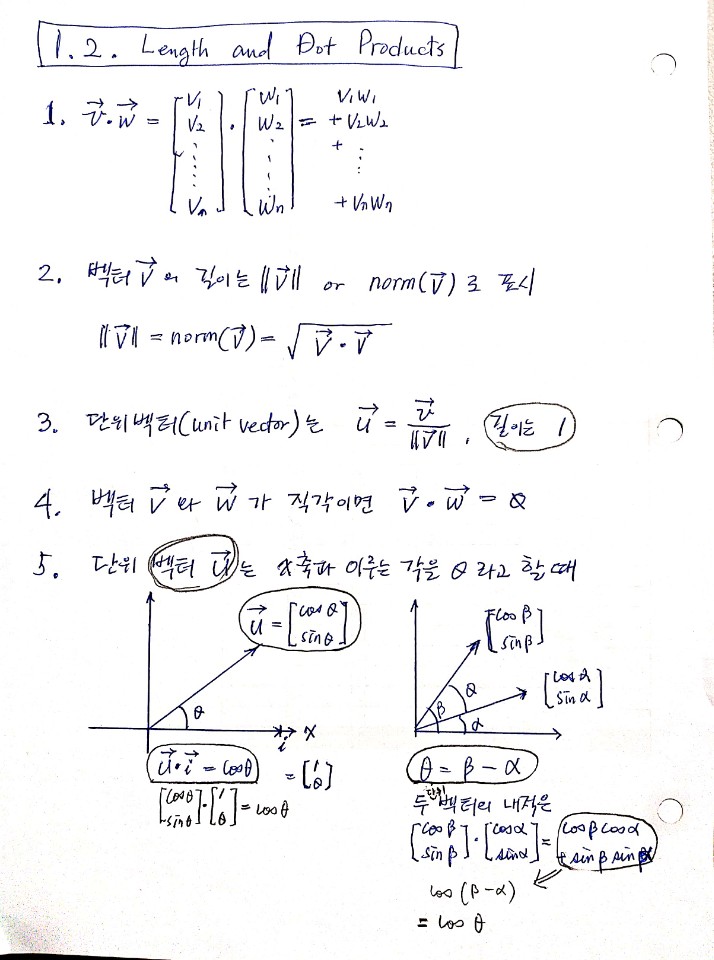 1.2. Length and Dot Products
1. v⃗·w⃗ = [v₁ v₂ ⋮ vₙ] · [w₁ w₂ ⋮ wₙ] = v₁w₁ + v₂w₂ + ⋮ + vₙwₙ
2. 벡터 v⃗ 의 길이는 ‖v⃗‖ or norm(v⃗) 로 표시
‖v⃗‖ = norm(v⃗) = √(v⃗·v⃗)
3. 단위벡터(unit vector)는 u⃗ = v⃗/‖v⃗‖ , 길이는 1
4. 벡터 v⃗ 와 w⃗ 가 직각이면 v⃗·w⃗ = 0
5. 단위 벡터 u⃗ 는 x축과 이루는 각을 θ 라고 할 때
u⃗ = [cosθ sinθ]
θ
x
i
u⃗·i⃗ = cosθ
= [1 0]
[cosθ sinθ]·[1 0] = cosθ
[cosβ sinβ]
[cosα sinα]
θ
β
α
θ = β - α
두 단위 벡터의 내적은
[cosβ sinβ]·[cosα sinα] = cosβcosα + sinβsinα
cos(β-α)
= cosθ